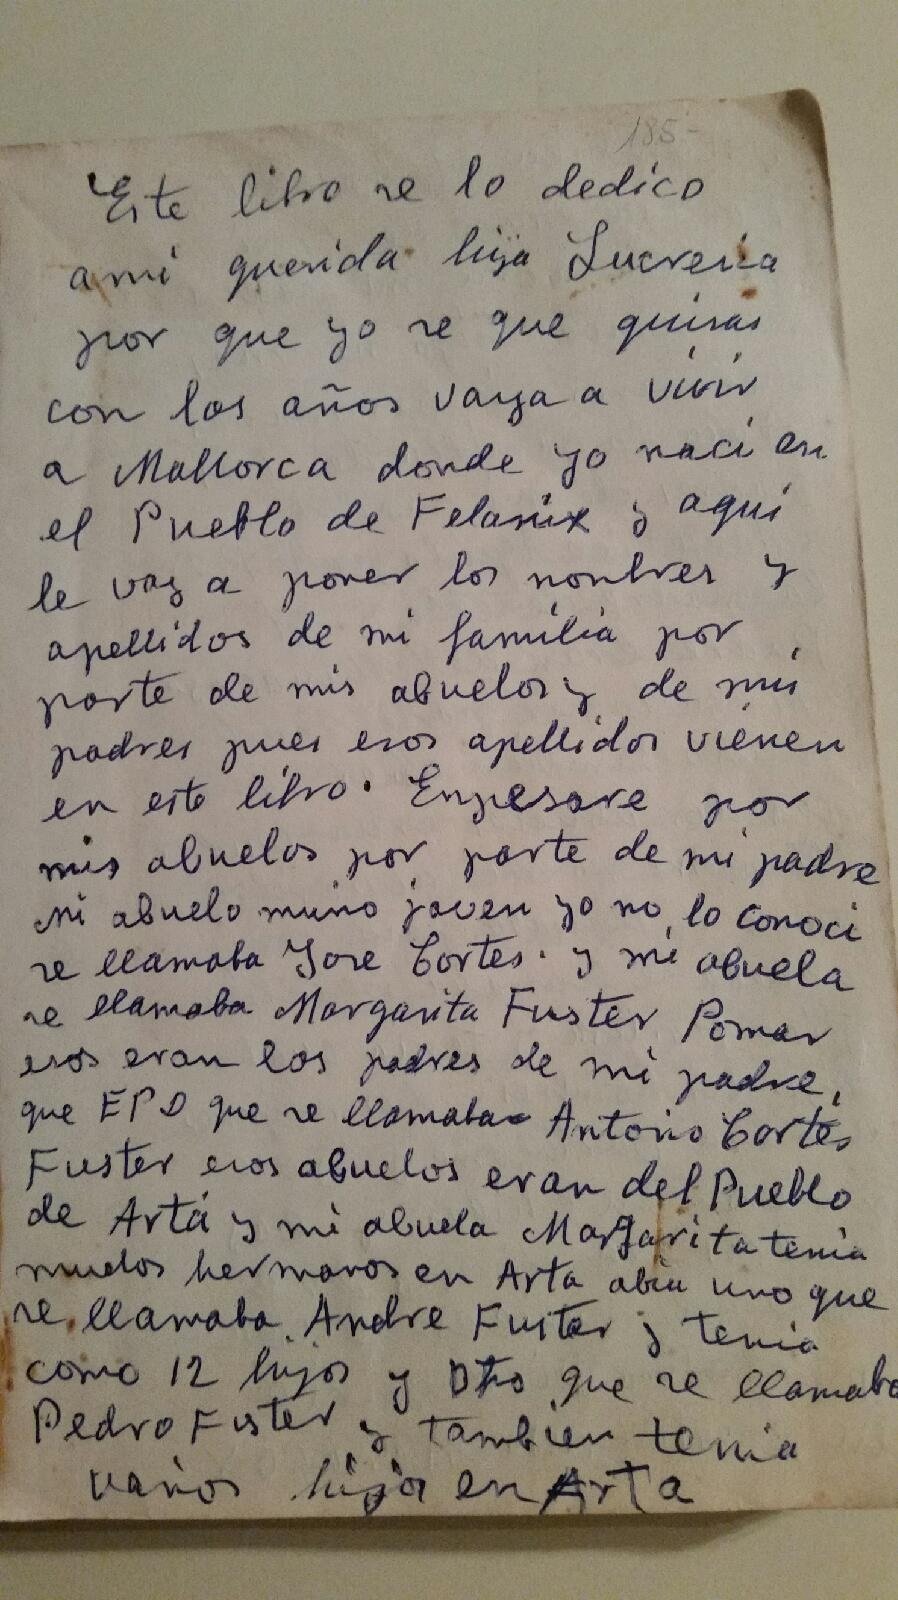 185-
Este libro se lo dedico
a mi querida hija Lucrecia
por que yo se que quisas
con los años vaya a vivir
a Mallorca donde yo naci en
el Pueblo de Felanix y aqui
le voy a poner los nombres y
apellidos de mi familia por
parte de mis abuelos y de mis
padres pues esos apellidos vienen
en este libro. Enpesare por
mis abuelos por parte de mi padre
Mi abuelo murio joven yo no lo conoci
se llamaba Jose Cortes. y mi abuela
se llamaba Margarita Fuster Pomar
esos eran los padres de mi padre,
que EPD que se llamaba Antonio Cortés
Fuster esos abuelos eran del Pueblo
de Artá y mi abuela Margarita tenia
muchos hermanos en Arta abia uno que
se llamaba Andre Fuster y tenia
como 12 hijos y Otro que se llamaba
Pedro Fuster y tambien tenia
varios hijos en Arta